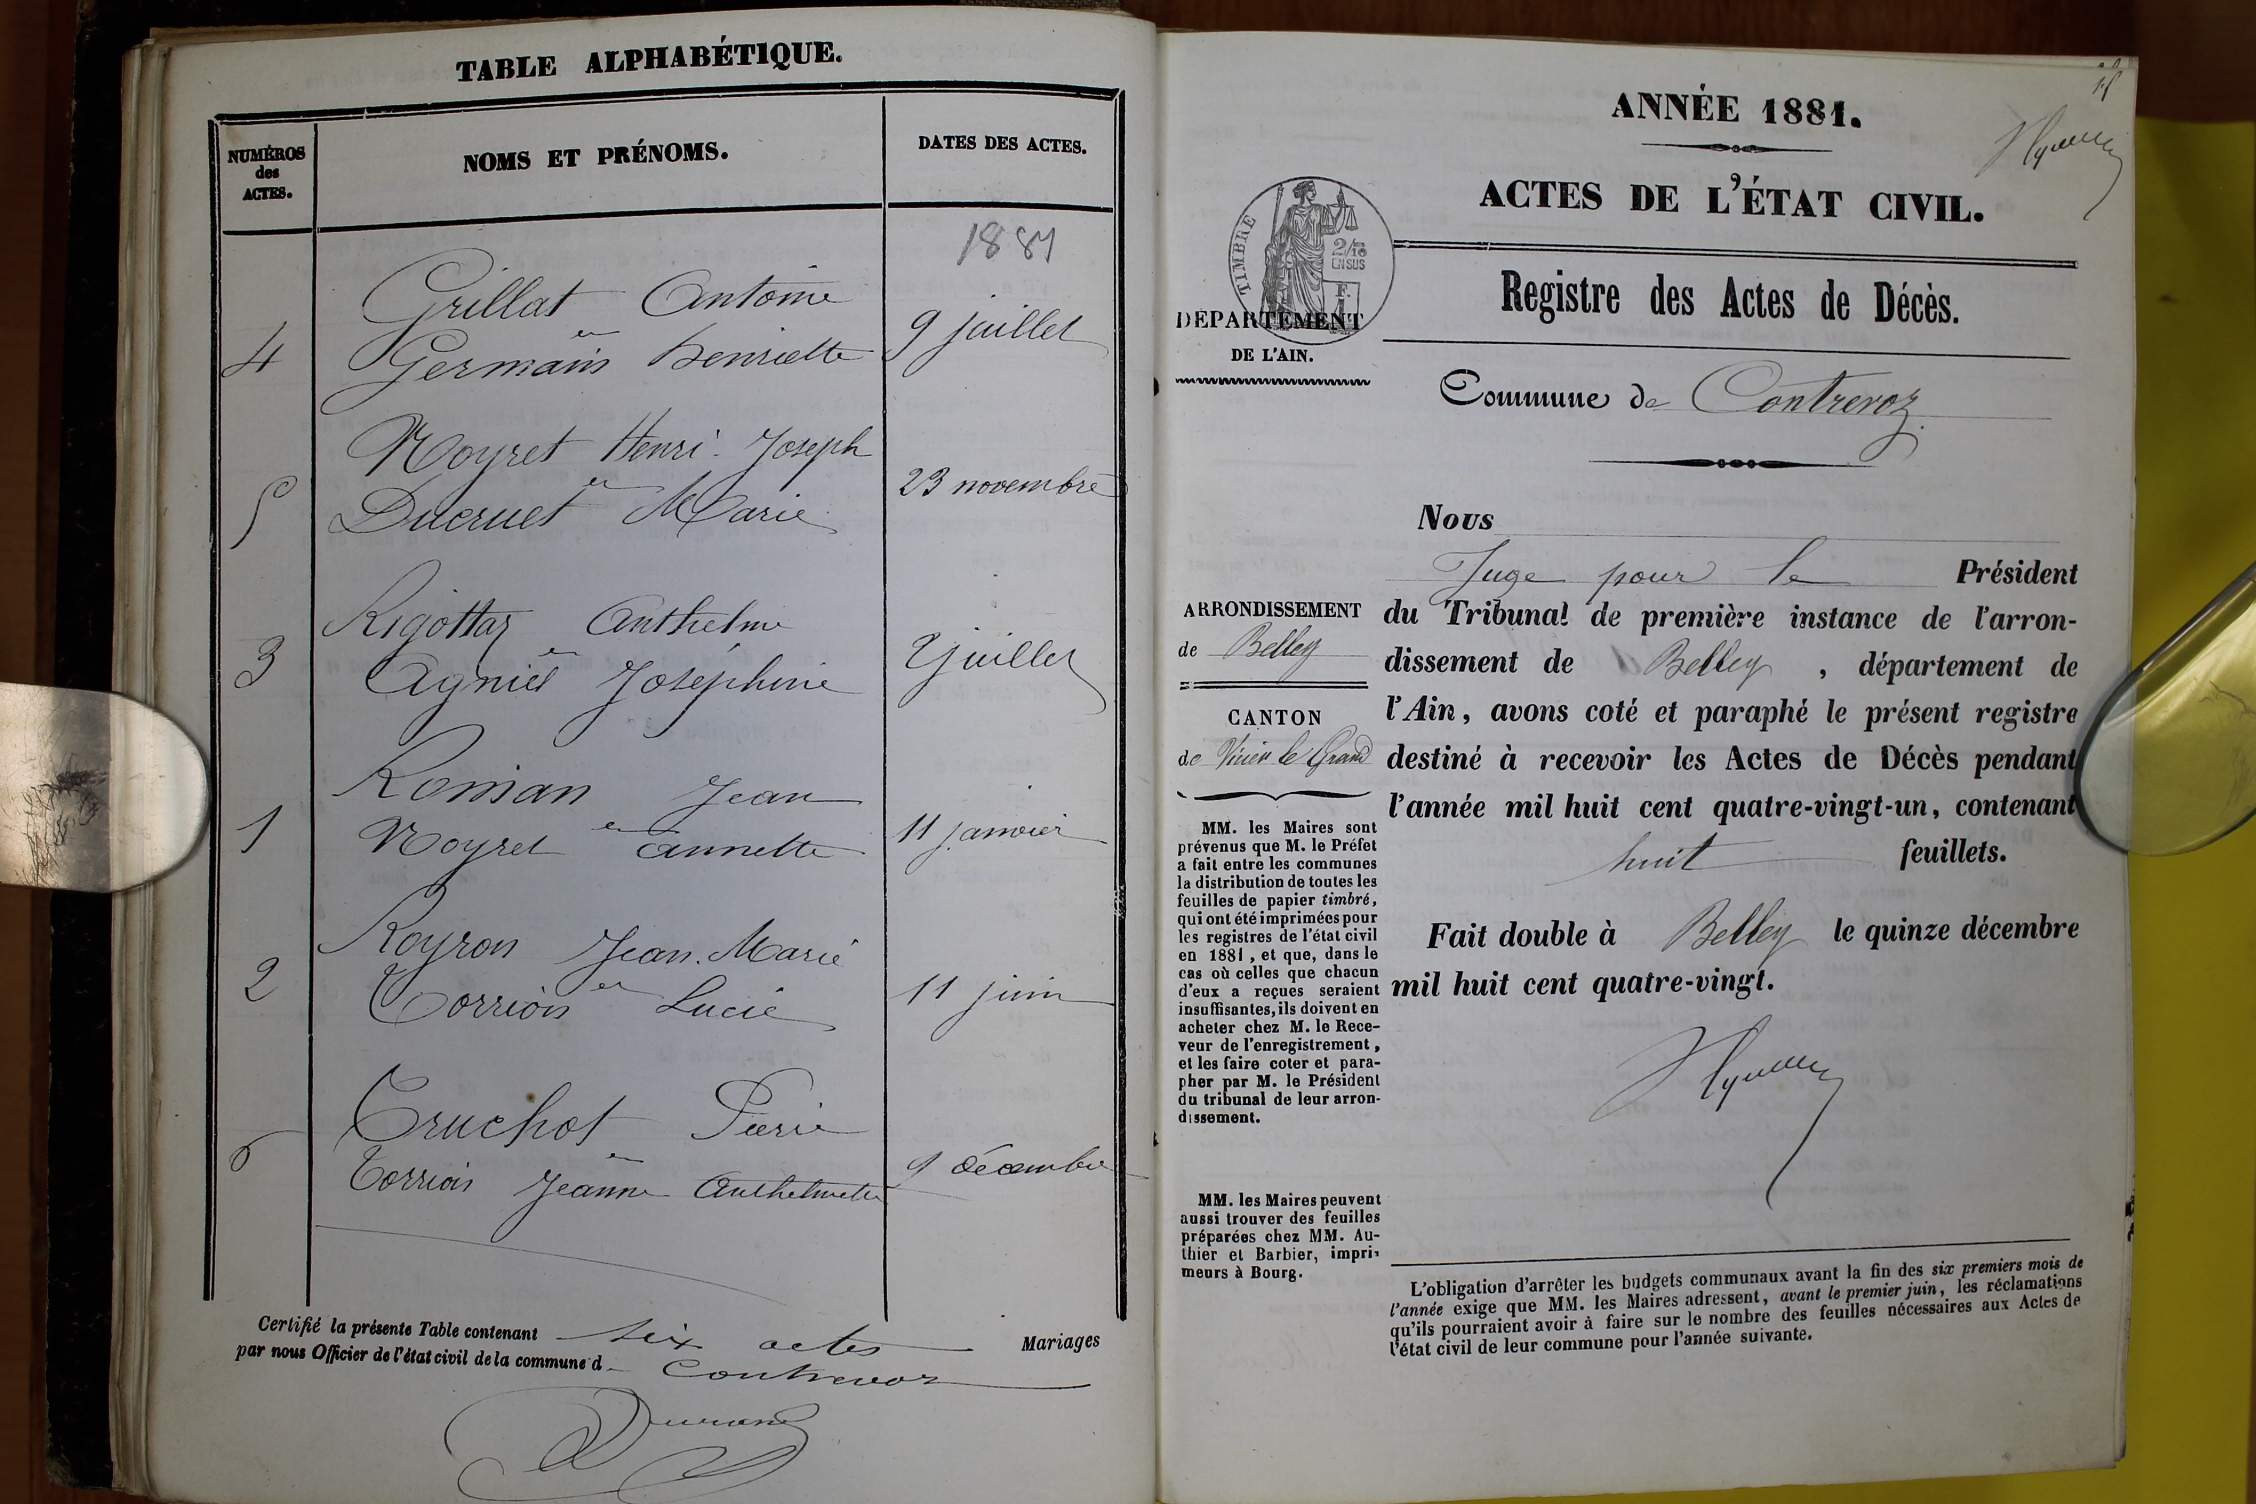 TABLE ALPHABÉTIQUE.
NUMÉROS
des
ACTES.
NOMS ET PRÉNOMS.
DATES DES ACTES.
1881
Grillat Antoine
et
4 Germain henriette 9 juillet
Noyret Henri-Joseph
et 23 novembre
5 Ducruet Marie
Rigottaz Anthelme
et
3 Agniel Joséphine 2 juillet
Roman Jean
et
1 Noyret annette 11 janvier
Royron Jean-Marie
et
2 Corrion Lucie 11 juin
Truchot Pierre
et
6 Corrion Jeanne Anthelmette 9 décembre
Certifié la présente Table contenant six actes Mariages
par nous Officier de l'état civil de la commune d Contrevoz
Durand
ANNÉE 1881.
ACTES DE L'ÉTAT CIVIL.
TIMBRE
2/10
EN SUS
F.
1
DÉPARTEMENT
DE L'AIN.
Registre des Actes de Décès.
Commune de Contrevoz
Nous
Juge pour le Président
du Tribunal de première instance de l'arron-
dissement de Belley, département de
l'Ain, avons coté et paraphé le présent registre
destiné à recevoir les Actes de Décès pendant
l'année mil huit cent quatre-vingt-un, contenant
huit feuillets.
Fait double à Belley le quinze décembre
mil huit cent quatre-vingt.
ARRONDISSEMENT
de Belley
CANTON
de Virieu le Grand
MM. les Maires sont
prévenus que M. le Préfet
a fait entre les communes
la distribution de toutes les
feuilles de papier timbré,
qui ont été imprimées pour
les registres de l'état civil
en 1881, et que, dans le
cas où celles que chacun
d'eux a reçues seraient
insuffisantes, ils doivent en
acheter chez M. le Rece-
veur de l'enregistrement,
et les faire coter et para-
pher par M. le Président
du tribunal de leur arron-
dissement.
MM. les Maires peuvent
aussi trouver des feuilles
préparées chez MM. Au-
thier et Barbier, impri-
meurs à Bourg.
L'obligation d'arrêter les budgets communaux avant la fin des six premiers mois de
l'année exige que MM. les Maires adressent, avant le premier juin, les réclamations
qu'ils pourraient avoir à faire sur le nombre des feuilles nécessaires aux Actes de
l'état civil de leur commune pour l'année suivante.